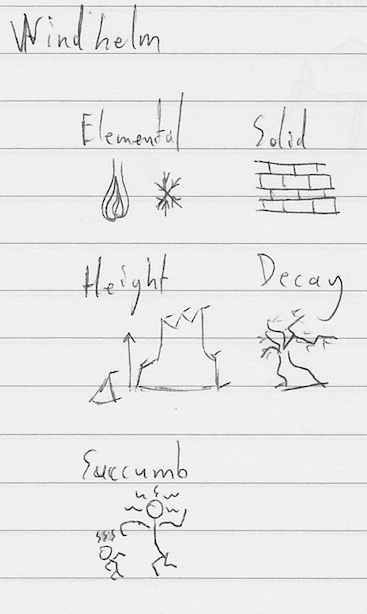 Windhelm
Elemental Solid
Height Decay
Succumb